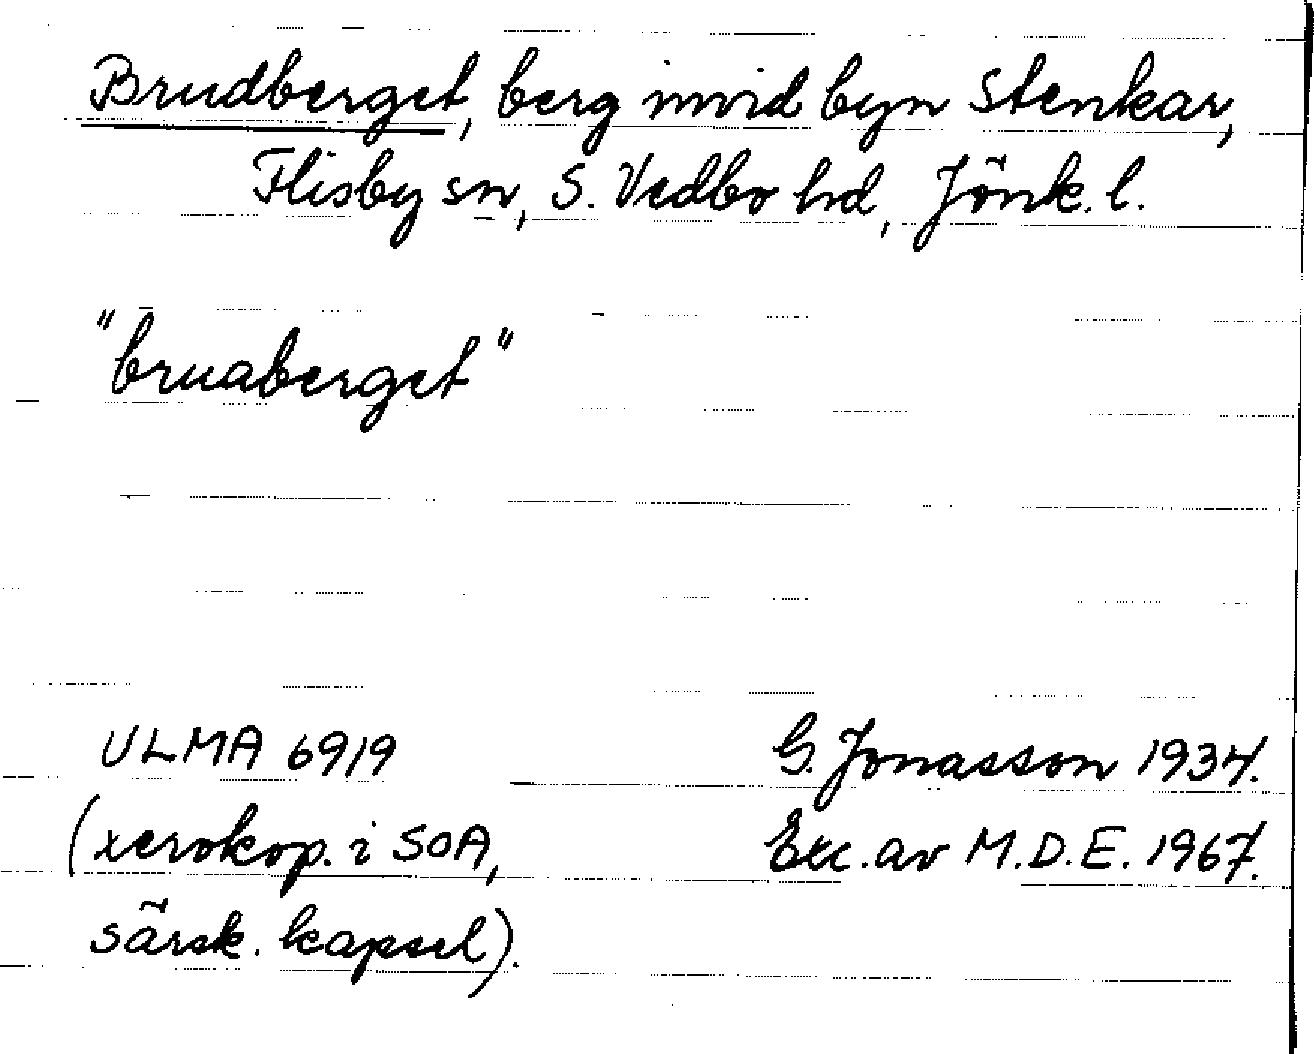 Brudberget, berg invid byn Stenkar,
Flisby sn, S. Vedbo hd, Jönk. l.
"bruaberget"
ULMA 6919
G. Jonasson 1934.
(xerokop. i SOA,
Exc. av M.D.E. 1967.
särsk. kapsel).